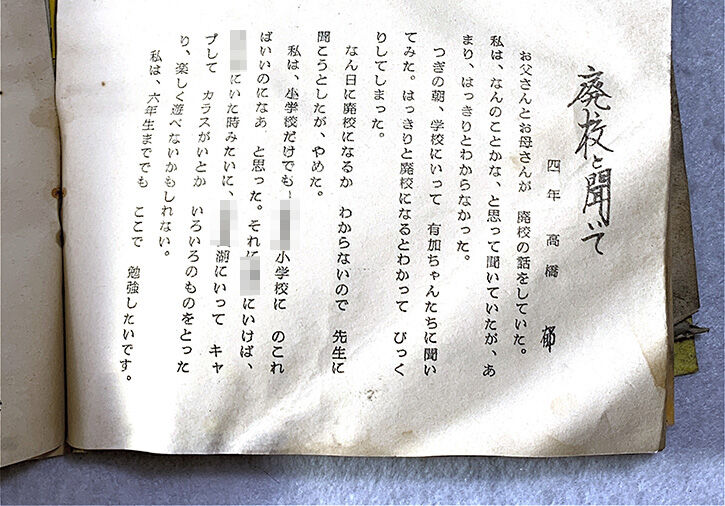 廃校と聞いて
四年 高橋 郁
お父さんとお母さんが 廃校の話をしていた。
私は、なんのことかな、と思って聞いていたが、あ
まり、はっきりとわからなかった。
つぎの朝、学校にいって 有加ちゃんたちに聞い
てみた。はっきりと廃校になるとわかって びっく
りしてしまった。
なん日に廃校になるか わからないので 先生に
聞こうとしたが、やめた。
私は、小学校だけでも 小学校に のこれ
ばいいのになあ と思った。それに にいけば、
にいた時みたいに、 湖にいって キャ
プして カラスがいとか いろいろのものをとった
り、楽しく遊べないかもしれない。
私は、六年生まででも ここで 勉強したいです。